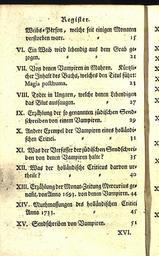 Register.
Weibs-Persen, welche seit einigen Monaten
verstorben ware. 15
VI. Ein Weib wird lebendig aus dem Grab ge-
zogen. 21
VII. Von denen Vampiren in Mähren. Kürzli-
cher Inhalt des Buchs, welches den Titul führt:
Magia posthuma. 23
VIII. Todte in Ungern, welche denen lebendigen
das Blut aussaugen. 27
IX. Erzählung der so genannten jüdischen Send-
schreiben von einem Vampiren. 29
X. Andere Exempel der Vampiren eines holländi-
schen Criticl.
XI. Was der Verfasser der jüdischen Sendschrei-
ben von denen Vampiren halte? 35
XII. Was der holländische Criticus darvon ur-
theile? 40
XIII. Erzählung der Monat-Zeitung Mercurius ge-
nannt, von Anno 1693. von denen Vampiren. 44
XIV. Muthmassungen des holländischen Critici
Anno 1733. 45
XV. Sendschreiben von Vampiren. 51
XVI.